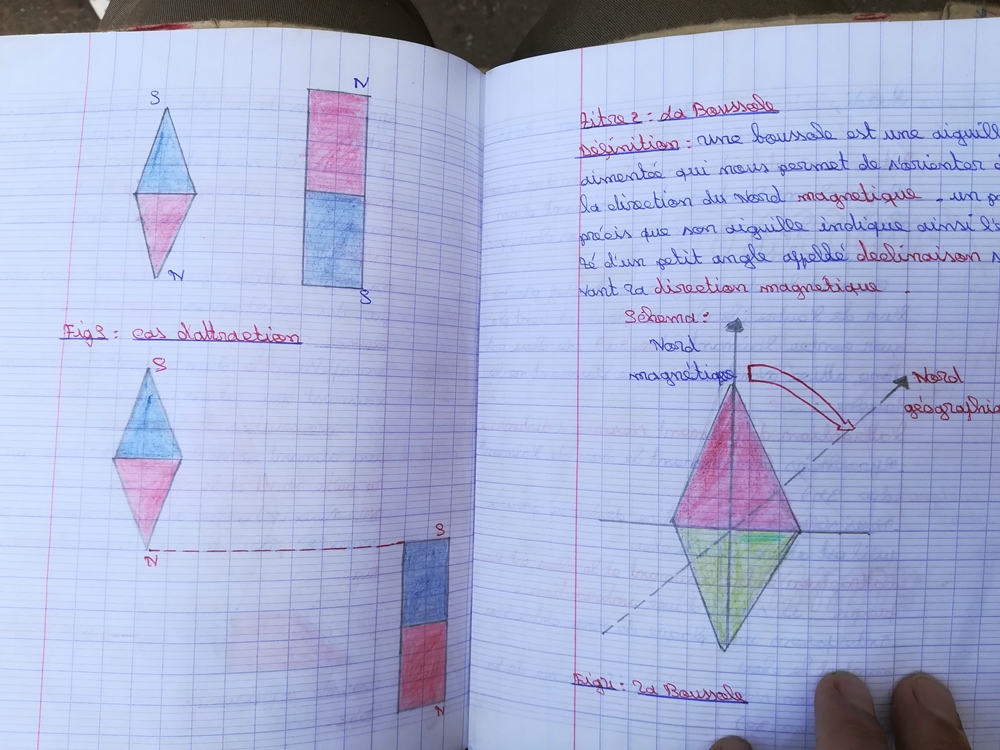 S
N
N
S
Fig3 : cas d'attraction
S
N
S
N
Titre 2 : La Boussole
Définition : Une boussole est une
aimentée qui nous permet de s'orienter
la direction du Nord magnétique. un
précis que son aiguille indique ainsi
té d'un petit angle appeldé declinaison
vant la direction magnétique.
Schema :
Nord
magnétique
Nord
Fig1 : La Boussole